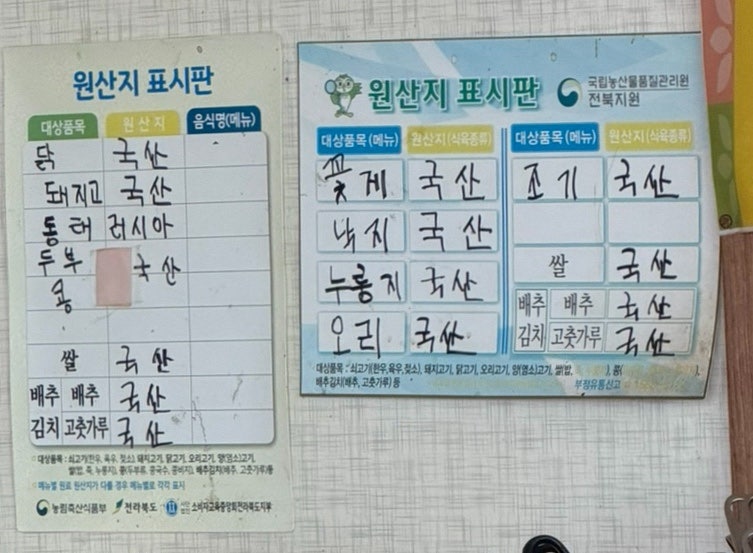 원산지 표시판
대상품목 원산지 음식명(메뉴)
닭 국산
돼지고 국산
동태 러시아
두부 국산
콩
쌀 국산
배추 배추 국산
김치 고춧가루 국산
대상품목 : 쇠고기(한우, 육우, 젖소), 돼지고기, 닭고기, 오리고기, 양(염소)고기,
쌀(밥, 죽, 누룽지), 콩(두부류, 콩국수, 콩비지), 배추김치(배추, 고춧가루)등
메뉴별 원료 원산지가 다를 경우 메뉴별로 각각 표시
농림축산식품부 전라북도 소비자교육중앙회전라북도지부
원산지 표시판 국립농산물품질관리원
전북지원
대상품목(메뉴) 원산지(식육종류) 대상품목(메뉴) 원산지(식육종류)
꽃게 국산 조기 국산
낙지 국산
누룽지 국산 쌀 국산
오리 국산 배추 배추 국산
김치 고춧가루 국산
대상품목 : 쇠고기(한우, 육우, 젖소), 돼지고기, 닭고기, 오리고기, 양(염소)고기, 쌀(밥,
배추김치(배추, 고춧가루) 등 부정유통신고